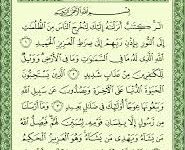 بِسْمِ اللَّهِ الرَّحْمَٰنِ الرَّحِيمِ
الٓر ۚ كِتَٰبٌ أَنزَلْنَٰهُ إِلَيْكَ لِتُخْرِجَ النَّاسَ مِنَ الظُّلُمَٰتِ
إِلَى النُّورِ بِإِذْنِ رَبِّهِمْ إِلَىٰ صِرَٰطِ الْعَزِيزِ الْحَمِيدِ ١
اللَّهِ الَّذِي لَهُ مَا فِي السَّمَٰوَٰتِ وَمَا فِي الْأَرْضِ ۗ وَوَيْلٌ
لِّلْكَٰفِرِينَ مِنْ عَذَابٍ شَدِيدٍ ٢ الَّذِينَ يَسْتَحِبُّونَ
الْحَيَوٰةَ الدُّنْيَا عَلَى الْءَاخِرَةِ وَيَصُدُّونَ عَن سَبِيلِ اللَّهِ
وَيَبْغُونَهَا عِوَجًا ۚ أُولَٰئِكَ فِي ضَلَٰلٍ بَعِيدٍ ٣ وَمَا أَرْسَلْنَا
مِن رَّسُولٍ إِلَّا بِلِسَانِ قَوْمِهِ لِيُبَيِّنَ لَهُمْ ۖ فَيُضِلُّ اللَّهُ
مَن يَشَاءُ وَيَهْدِي مَن يَشَاءُ ۚ وَهُوَ الْعَزِيزُ الْحَكِيمُ